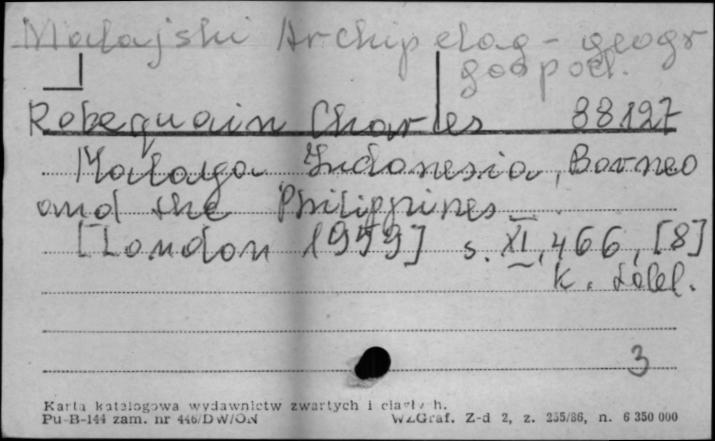 Malajski Archipelag - geogr
gospod.
Robequain Charles 88127
Malaya Indonesia, Borneo
and the Philippines
[London 1959] s. XI, 466, [8]
k. tabl.
3
Karta katalogowa wydawnictw zwartych i ciągłych.
Pu-B-144 zam. nr 446/DW/ON WZGraf. Z-d 2, z. 255/86, n. 6 350 000